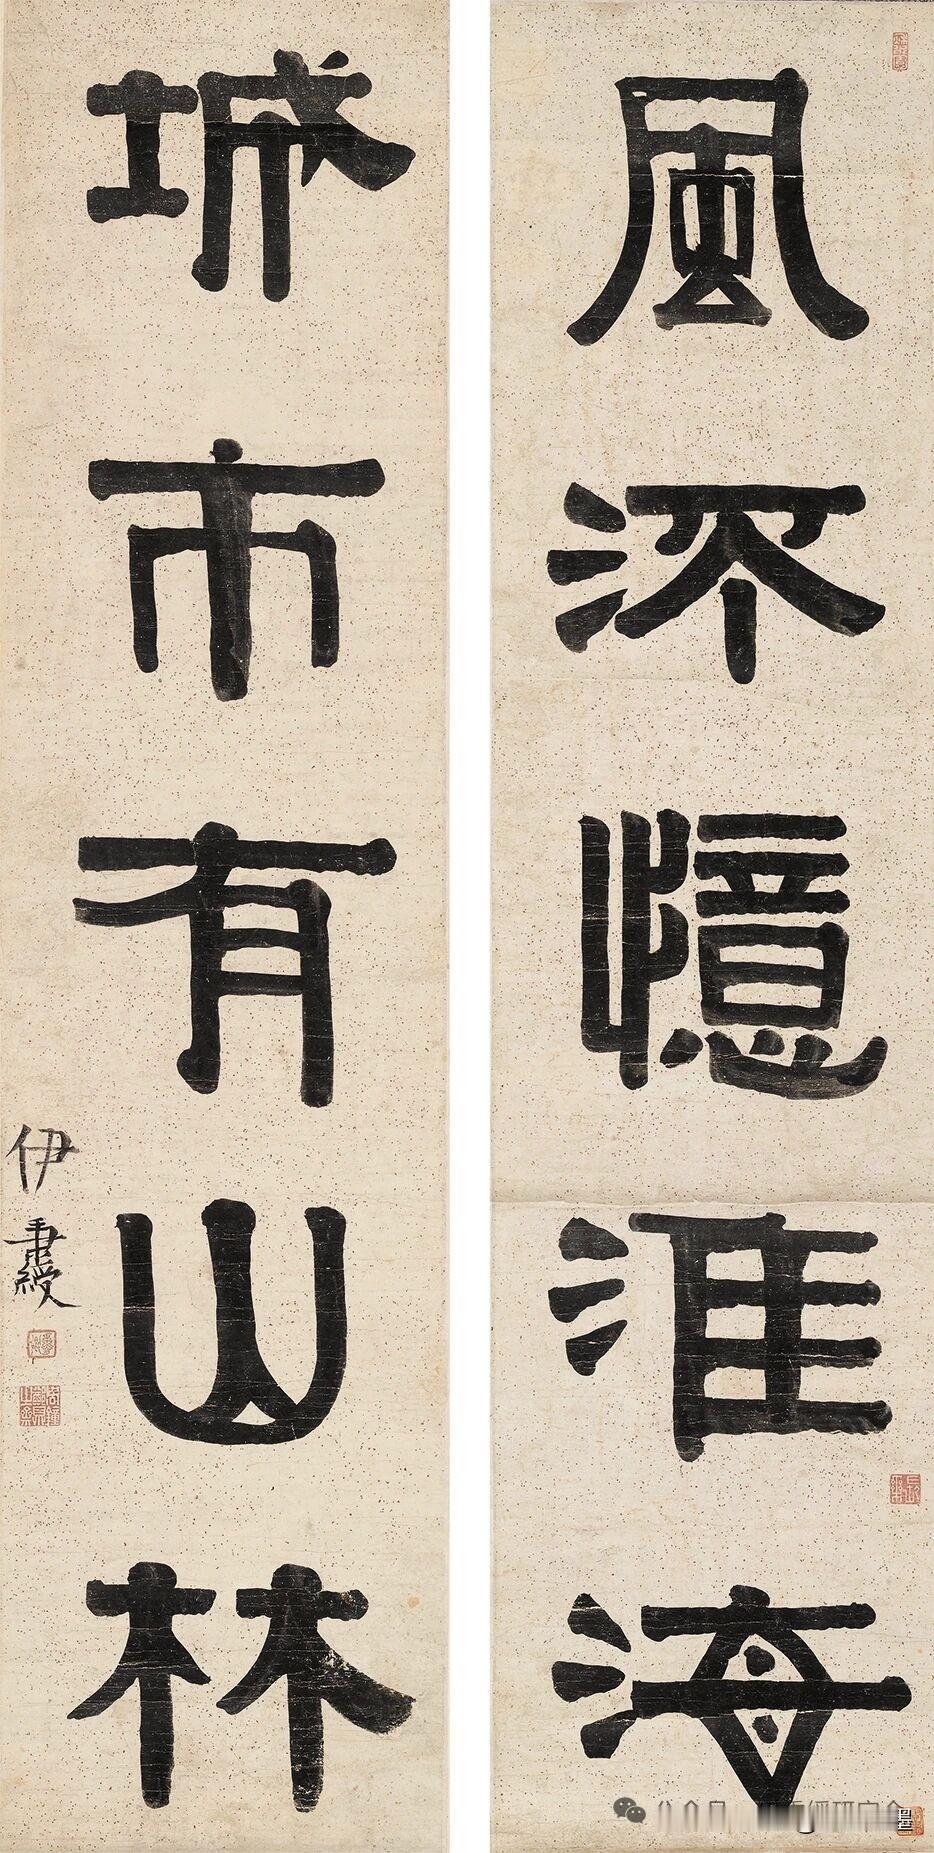 風流憶淮海
城市有山林
伊秉綬